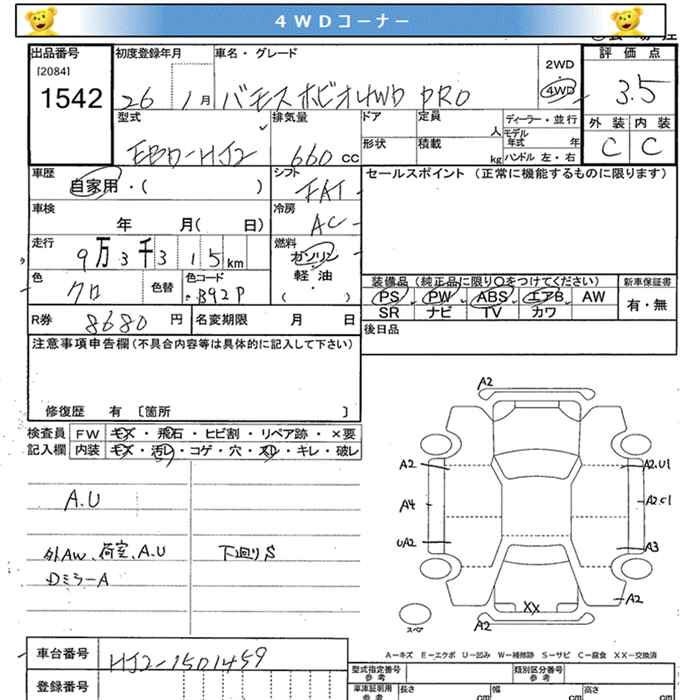 4WDコーナー
出品番号
[2084]
1542
初度登録年月
26 1月
車名・グレード
バモスホビオ4WD PRO
2WD
4WD
評価点
3.5
外装 内装
C C
型式
EBD-HJ2
排気量
660 cc
ドア
定員
人
ディーラー・並行
形状
積載
kg
モデル年式 年
ハンドル 左・右
車歴
自家用・( )
シフト
FAT
セールスポイント (正常に機能するものに限ります)
車検
年 月( 日)
冷房
AC
走行
9万3千315km
燃料
ガソリン
軽・油
( )
色
クロ
色替
色コード
B92P
装備品 (純正品に限り〇をつけてください)
新車保証書
PS PW ABS エアB AW
有・無
SR ナビ TV カワ
R券 8680円
名変期限 月 日
後日品
注意事項申告欄(不具合内容等は具体的に記入して下さい)
修復歴 有 〔箇所 〕
検査員 FW キズ・飛石・ヒビ割・リペア跡・×要
記入欄 内装 キズ・汚レ・コゲ・穴・スレ・キレ・破レ
A.U
外AW、荷室、A.U
Dミラー A
下廻りS
A2
A2
A2.U1
A4
A2.C1
UA2
A3
A2
XX
スペア
A2
A-キズ E-エクボ U-凹み W-補修跡 S-サビ C-腐食 XX-交換済
車台番号 HJ2-1501459
登録番号
型式指定番号
参考
類別区分番号
参考
車庫証明用
参考
長さ
cm
幅
cm
高さ
cm